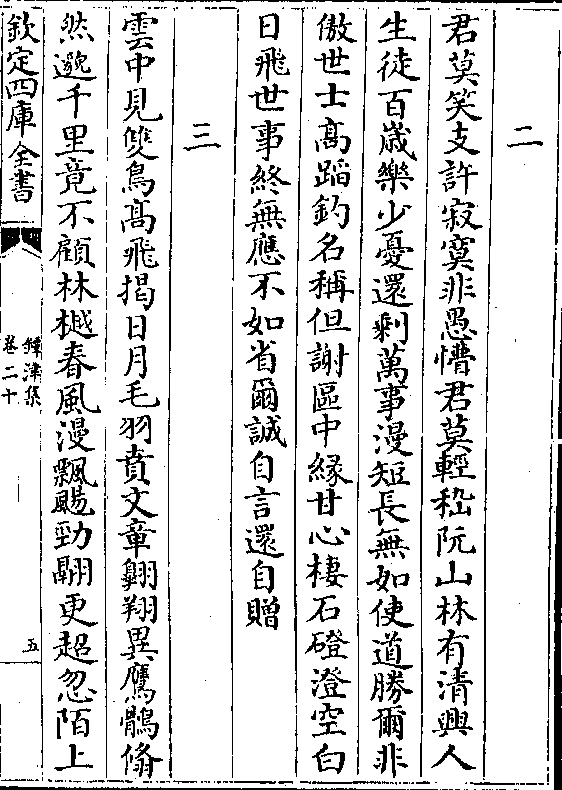 二
君莫笑支許寂寞非愚懵君莫輕嵇阮山林有清興人
生徒百歲樂少憂還剩萬事漫短長無如使道勝爾非
傲世士髙蹈釣名稱但謝區中緣甘心棲石磴澄空白
日飛世事終無應不如省爾誠自言還自贈
三
雲中見雙鳥髙飛揭日月毛羽賁文章翺翔異鷹鶻翛
然邈千里竟不顧林樾春風漫飄颺勁翮更超忽陌上
欽定四庫全書
鐔津集
卷二十
五